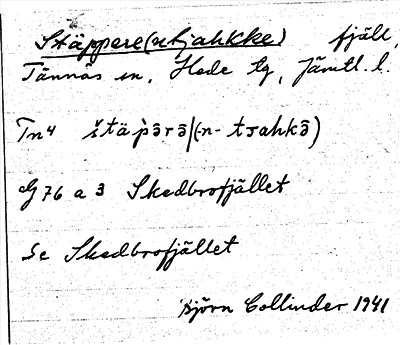 Stäppere(ntjahkke) fjäll,
Tännäs sn, Hede tg, Jämtl. l.
Tn⁴ štäp̀ərə̄|(n- tsahkə̄)
G 76 a 3 Skedbrofjället
Se Skedbrofjället
Björn Collinder 1941